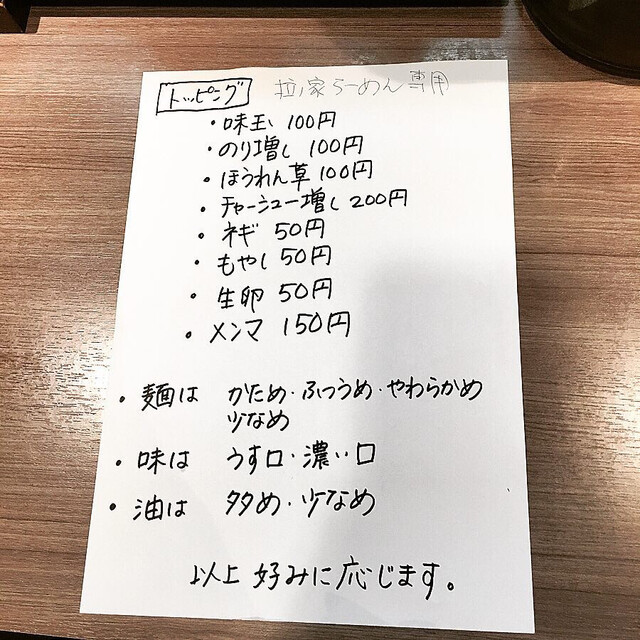 トッピング 拉ノ家らーめん専用
・味玉 100円
・のり増し 100円
・ほうれん草 100円
・チャーシュー増し 200円
・ネギ 50円
・もやし 50円
・生卵 50円
・メンマ 150円
・麺は かため・ふつうめ・やわらかめ
少なめ
・味は うす口・濃い口
・油は 多め・少なめ
以上 好みに応じます。